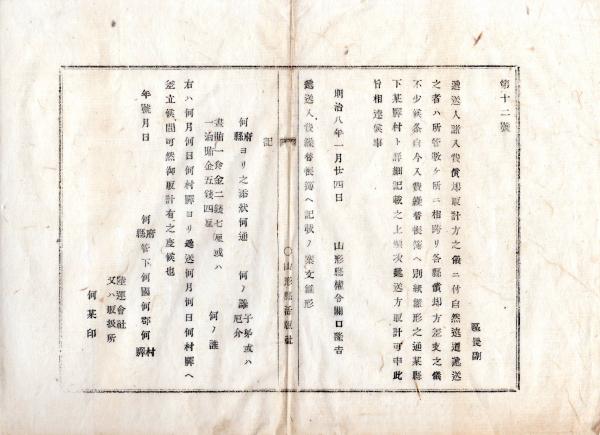 第十二號
區長副
遞送人諸入費償却取計方之儀ニ付自然迯遁遞送
之者ハ所管數ケ所ニ相跨リ各縣償却方差支之儀
不少候条自今入費繰替帳簿ヘ別紙雛形之通某縣
下某驛村ト詳細記載之上順次遞送方取計可申此
旨相達候事
明治八年一月廿四日
山形縣權令關口隆吉
遞送入費繰替帳簿ヘ記載ノ案文雛形
〇山形縣活版社
記
何府縣ヨリ之添狀何通 何ノ誰子弟或ハ厄介
一晝賄一食金二錢七厘或ハ 何ノ誰
一泊賄金五錢四厘
右ハ何月何日何村驛ヨリ遞送何月何日何村驛ヘ
差立候間可然御取計有之度候也
年號月日
何府縣管下何國何郡何村驛
陸運會社
又ハ取扱所
何某印